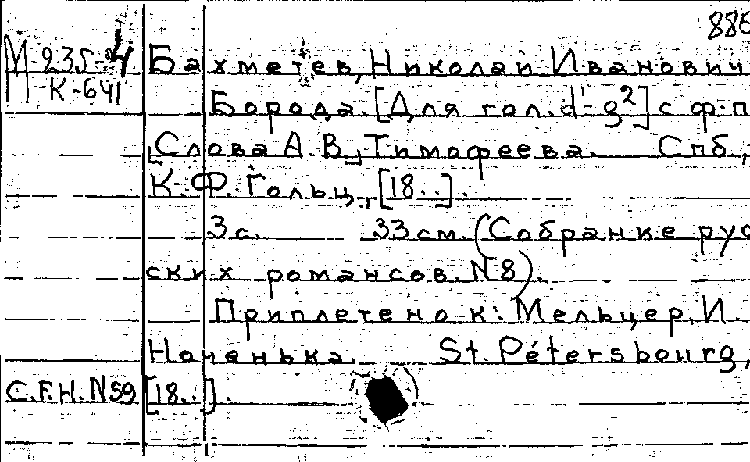 886
М-235-4 Бахметев, Николай Иванович
М К-641
Борода. [Для гол. d'-g²] с ф-п
[Слова А. В.] Тимофеева. Спб.,
К. Ф. Гольц, [18..].
3 с. 33 см. (Собрание рус
ских романсов. N8).
Приплетено к: Мельцер, И.
Ноченька. St. Pétersbourg,
С.F.H. N59 [18..].